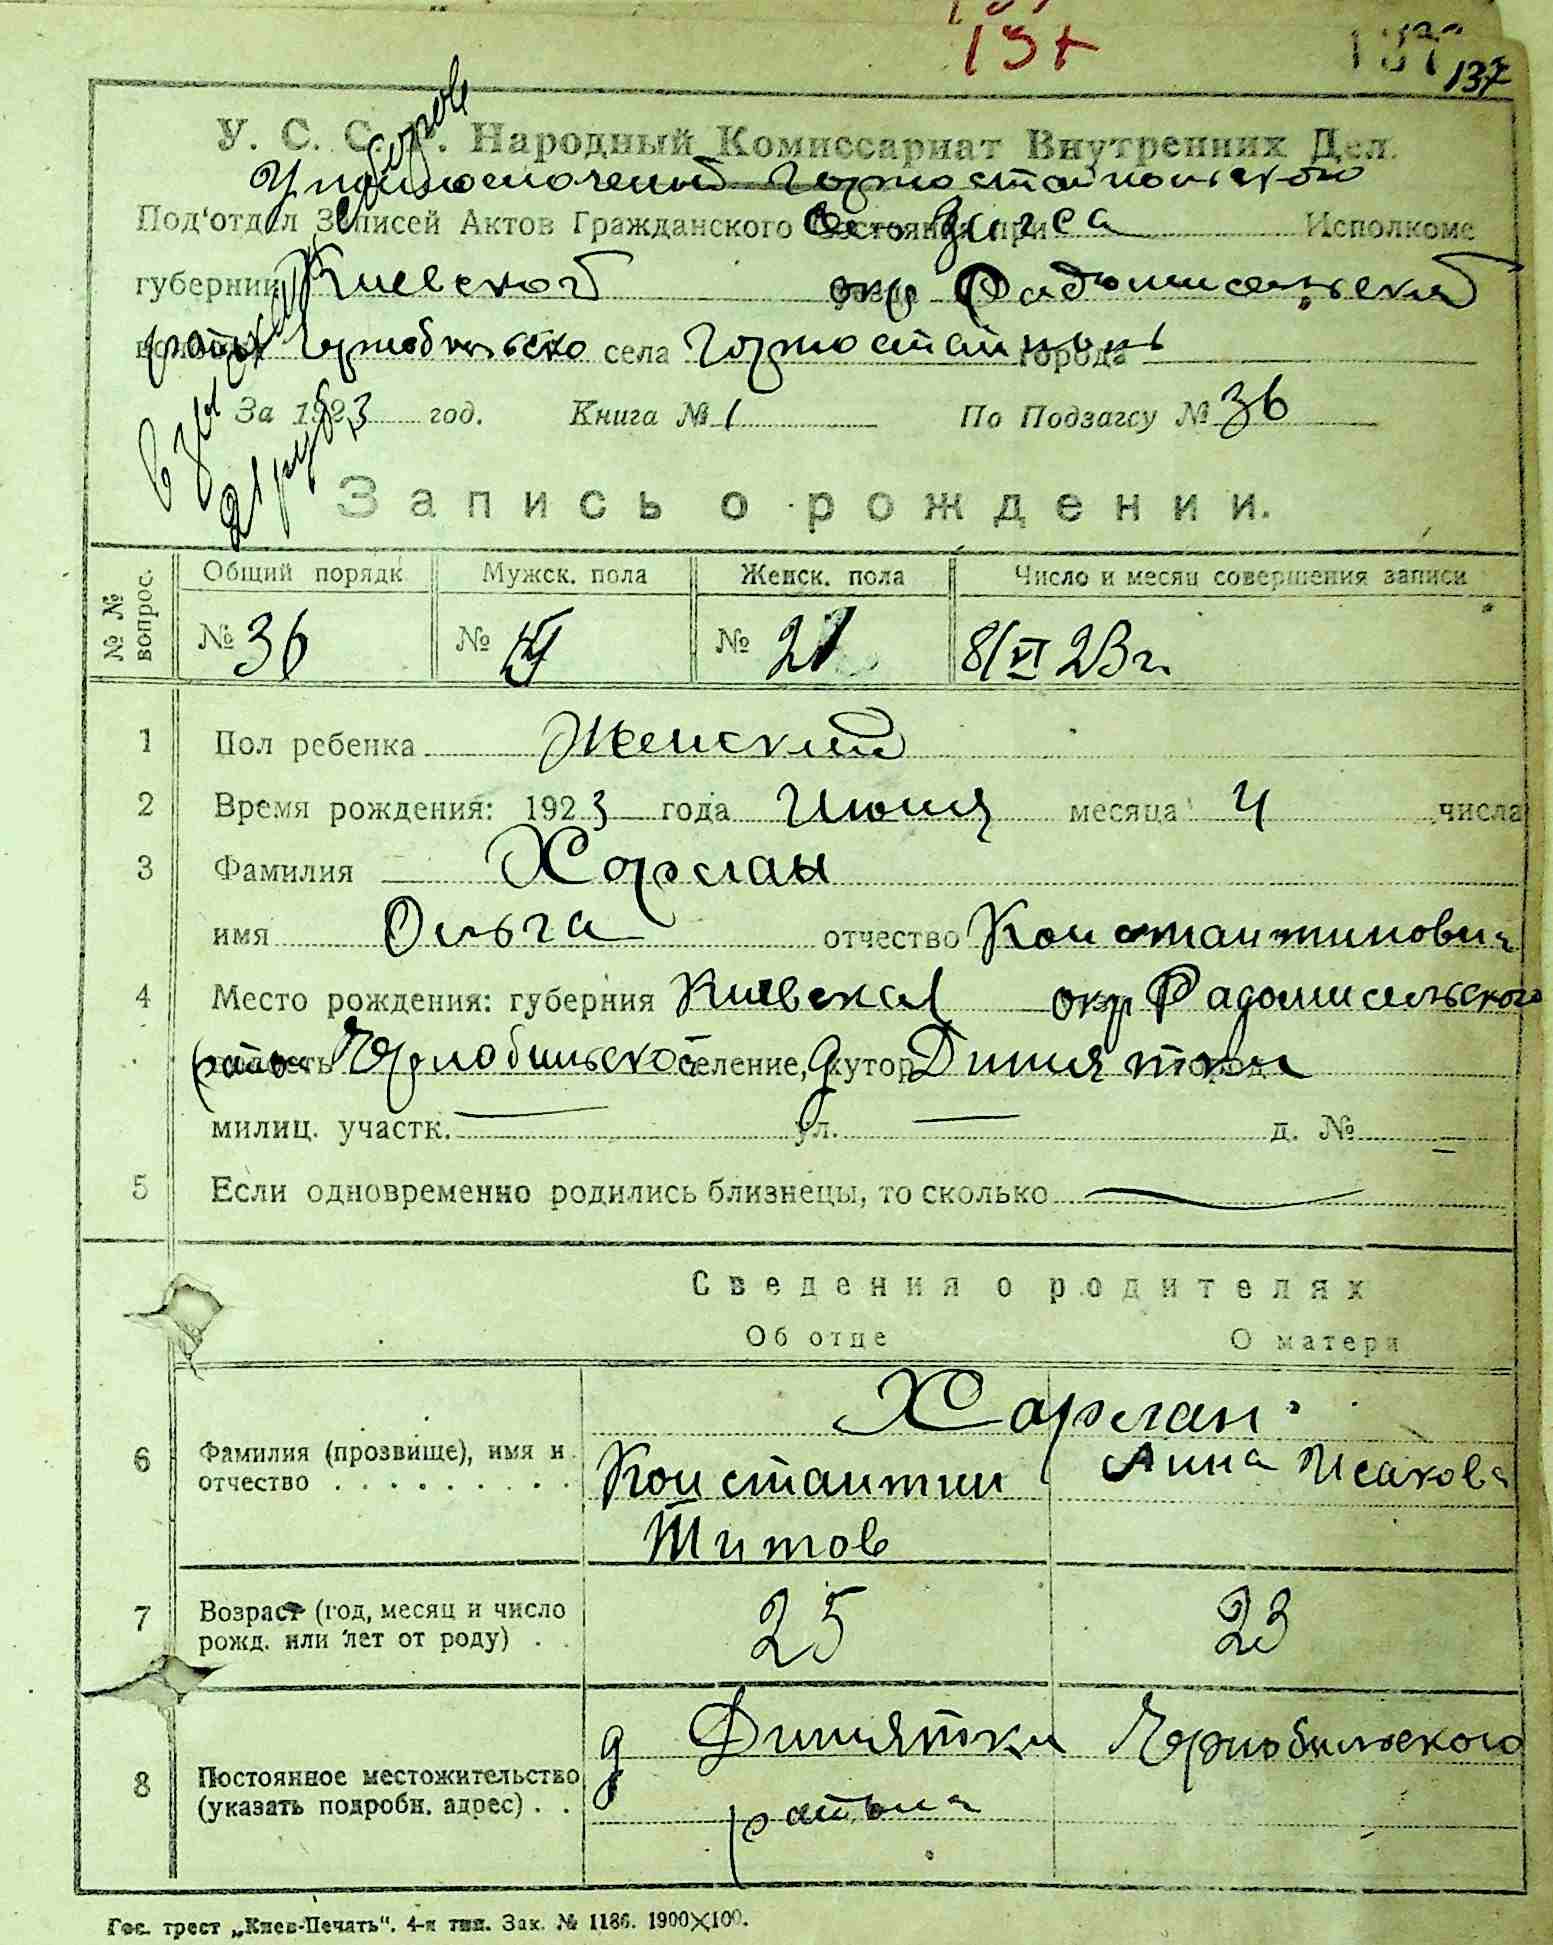 137
137
137
У. С. С. Р. Народный Комиссариат Внутренних Дел.
Уполномоченый Горностайпольского
Под'отдел Записей Актов Гражданского Состояния при Загса Исполкоме
губернии Киевской окр Радомисельской
район Чернобыльско села Горностайполь города
За 1923 год. Книга № 1 По Подзагсу № 36
21 руб
Запись о рождении.
№ № вопрос. Общий порядк. Мужск. пола Женск. пола Число и месяц совершения записи
№ 36 № № 21 8/VI 23 г.
1 Пол ребенка Женский
2 Время рождения: 1923 года Июня месяца 4 числа
3 Фамилия Харлан
имя Ольга отчество Константиновна
4 Место рождения: губерния Киевская окр Радомисельского
район Чернобильской селение, хутор д Дитятки
милиц. участк. — ул. — д. № —
5 Если одновременно родились близнецы, то сколько —
Сведения о родителях
Об отце О матери
Харлан
6 Фамилия (прозвище), имя и отчество . . . . . . . . . Константин Анна Исакова
Титов
7 Возраст (год, месяц и число рожд. или лет от роду) . . 25 23
8 Постоянное местожительство (указать подробн. адрес) . . д Дитятки Чернобильского
района
Гос. трест „Киев-Печать". 4-я тип. Зак. № 1186. 1900×100.